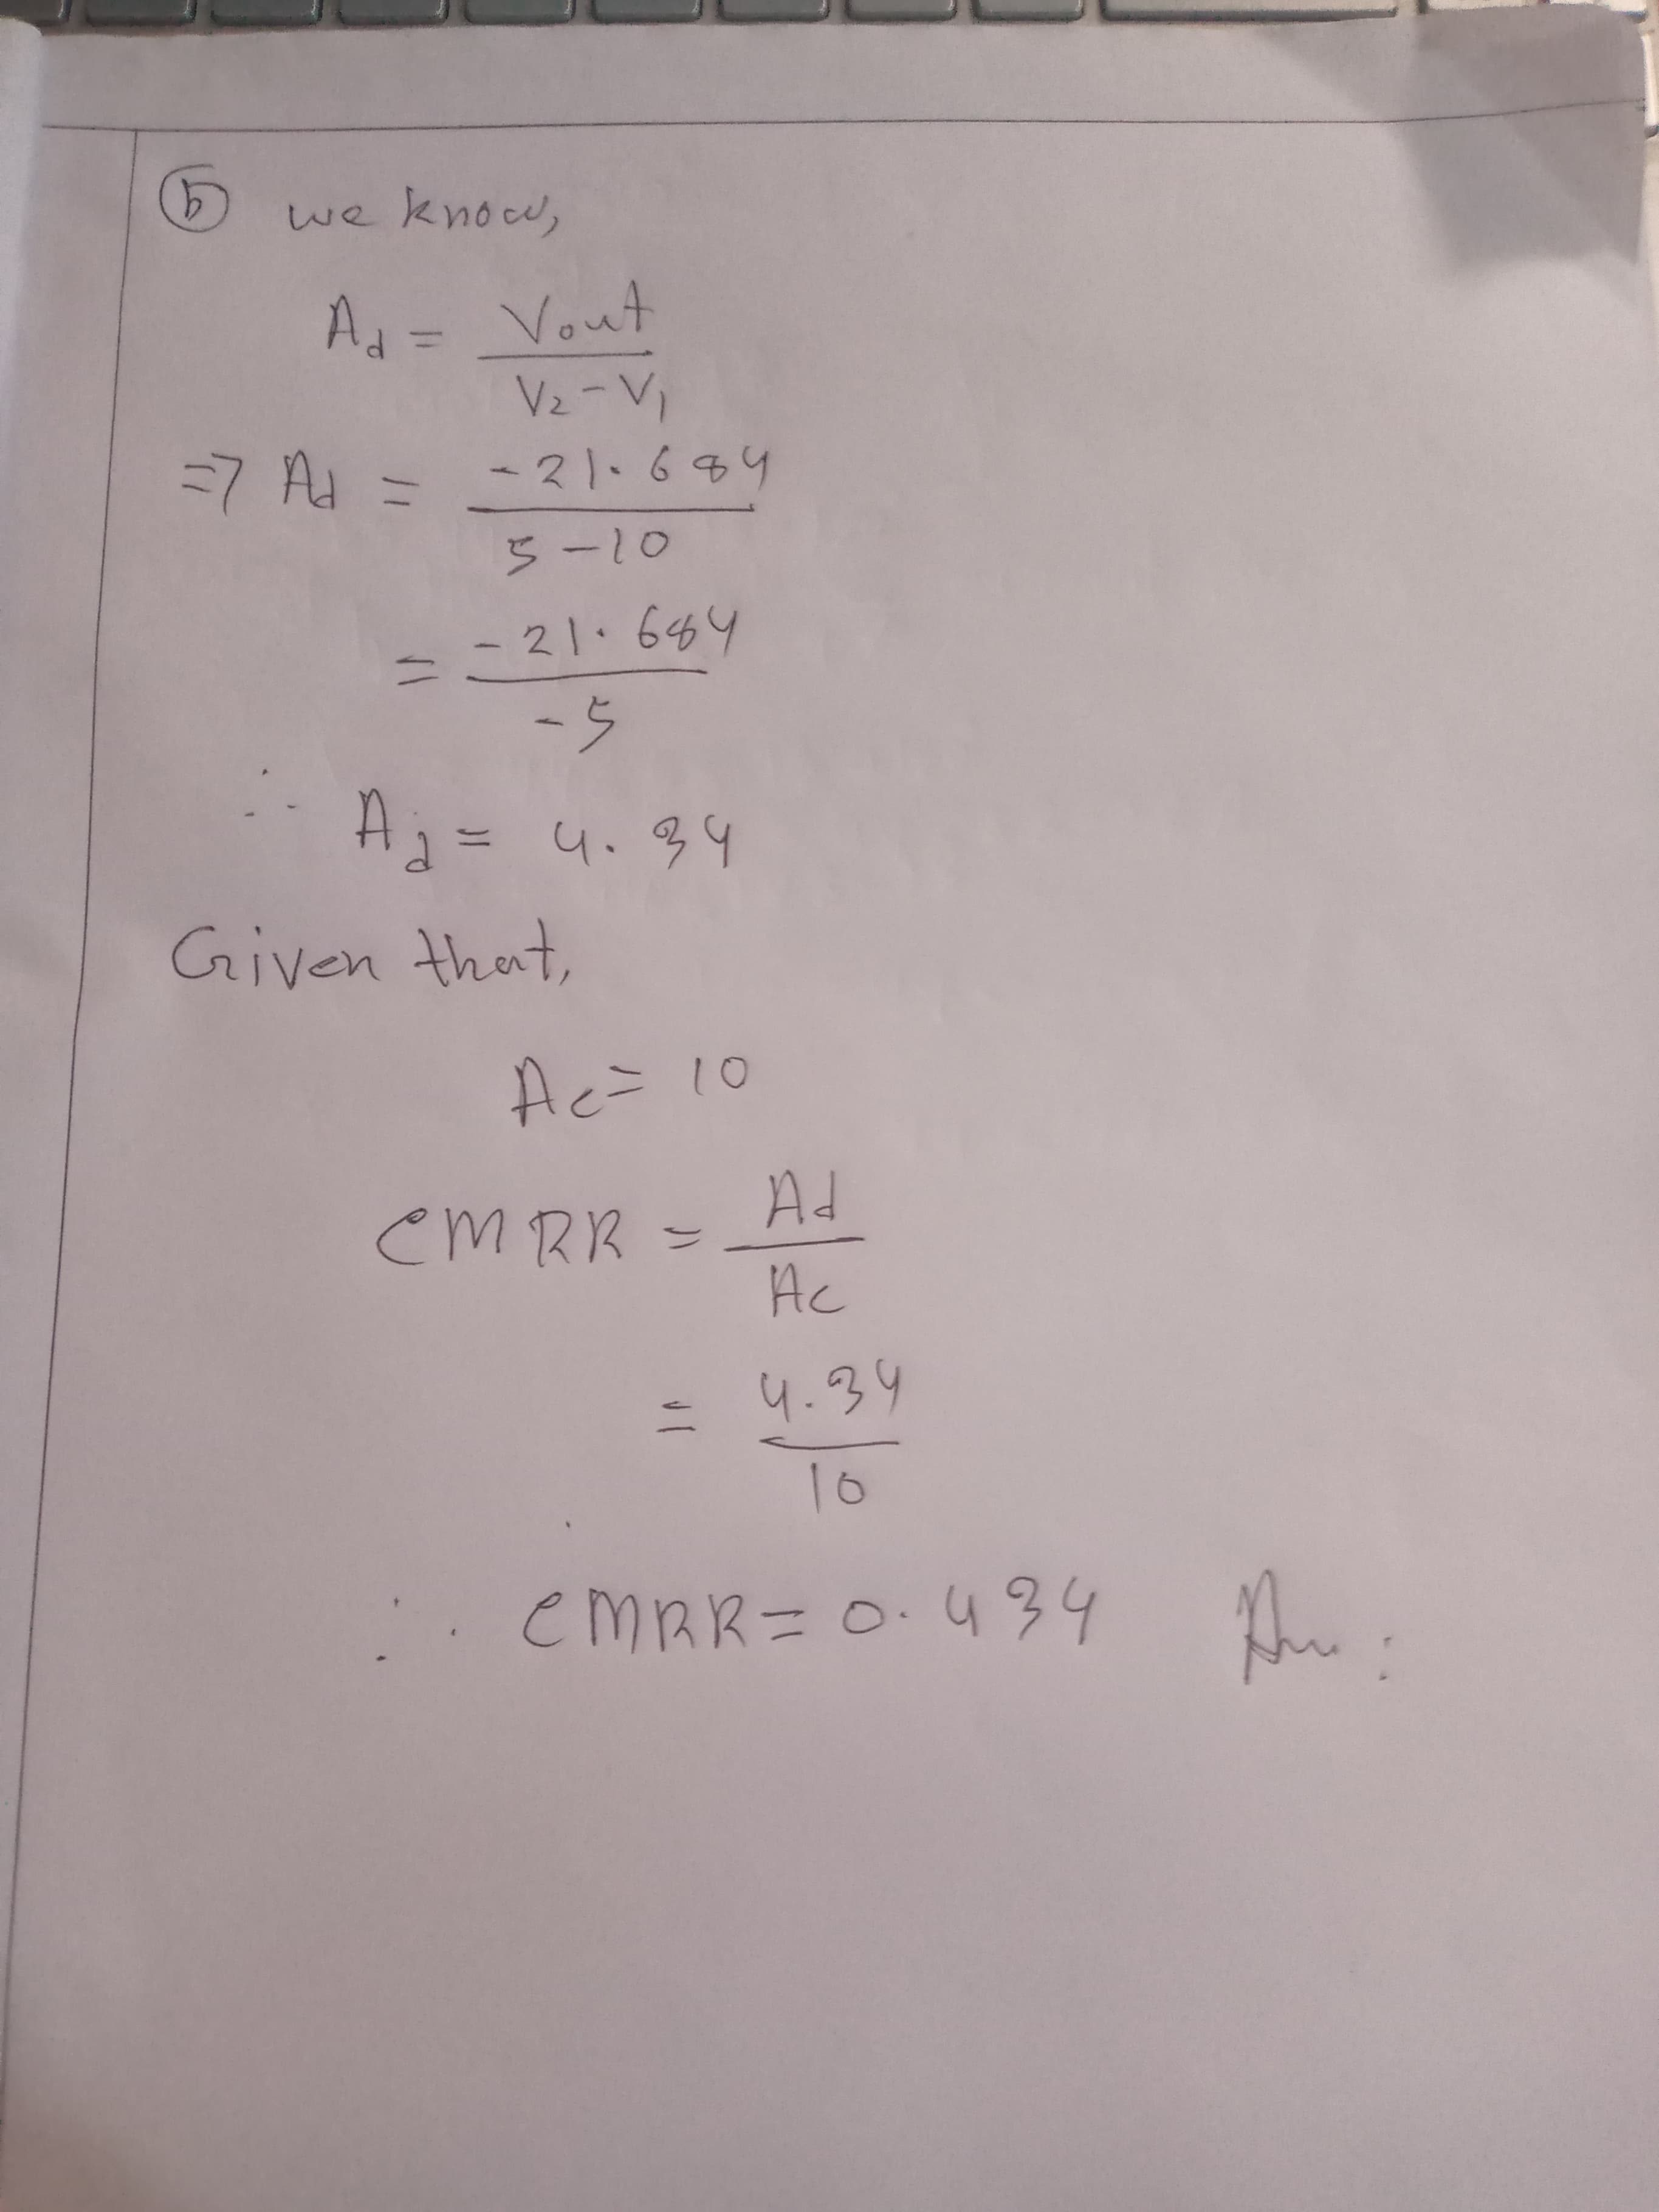 ⓑ we know,
Ad = Vout / V2 - V1
=> Ad = -21.684 / 5 - 10
= -21.684 / -5
∴ Ad = 4.34
Given that,
Ac = 10
CMRR = Ad / Ac
= 4.34 / 10
∴ CMRR = 0.434 Ans: